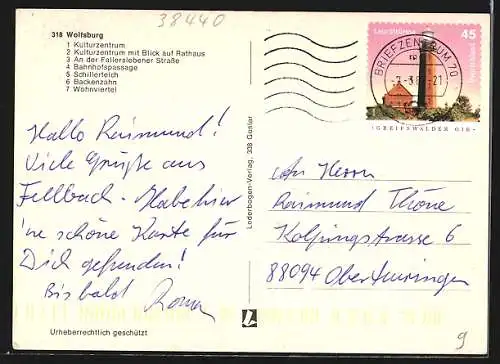 38440
318 Wolfsburg
1 Kulturzentrum
2 Kulturzentrum mit Blick auf Rathaus
3 An der Fallerslebener Straße
4 Bahnhofspassage
5 Schillerteich
6 Backenzahn
7 Wohnviertel
Hallo Raimund!
Viele Grüße aus
Fellbach. Habe hier
'ne schöne Karte für
Dich gefunden!
Bis bald
Urheberrechtlich geschützt
Lederbogen-Verlag, 338 Goslar
Leuchttürme
45
Deutschland
GREIFSWALDER OIE
BRIEFZENTRUM 70
An Herrn
Raimund Thöne
Kolpingstrasse 6
88094 Oberteuringen
9